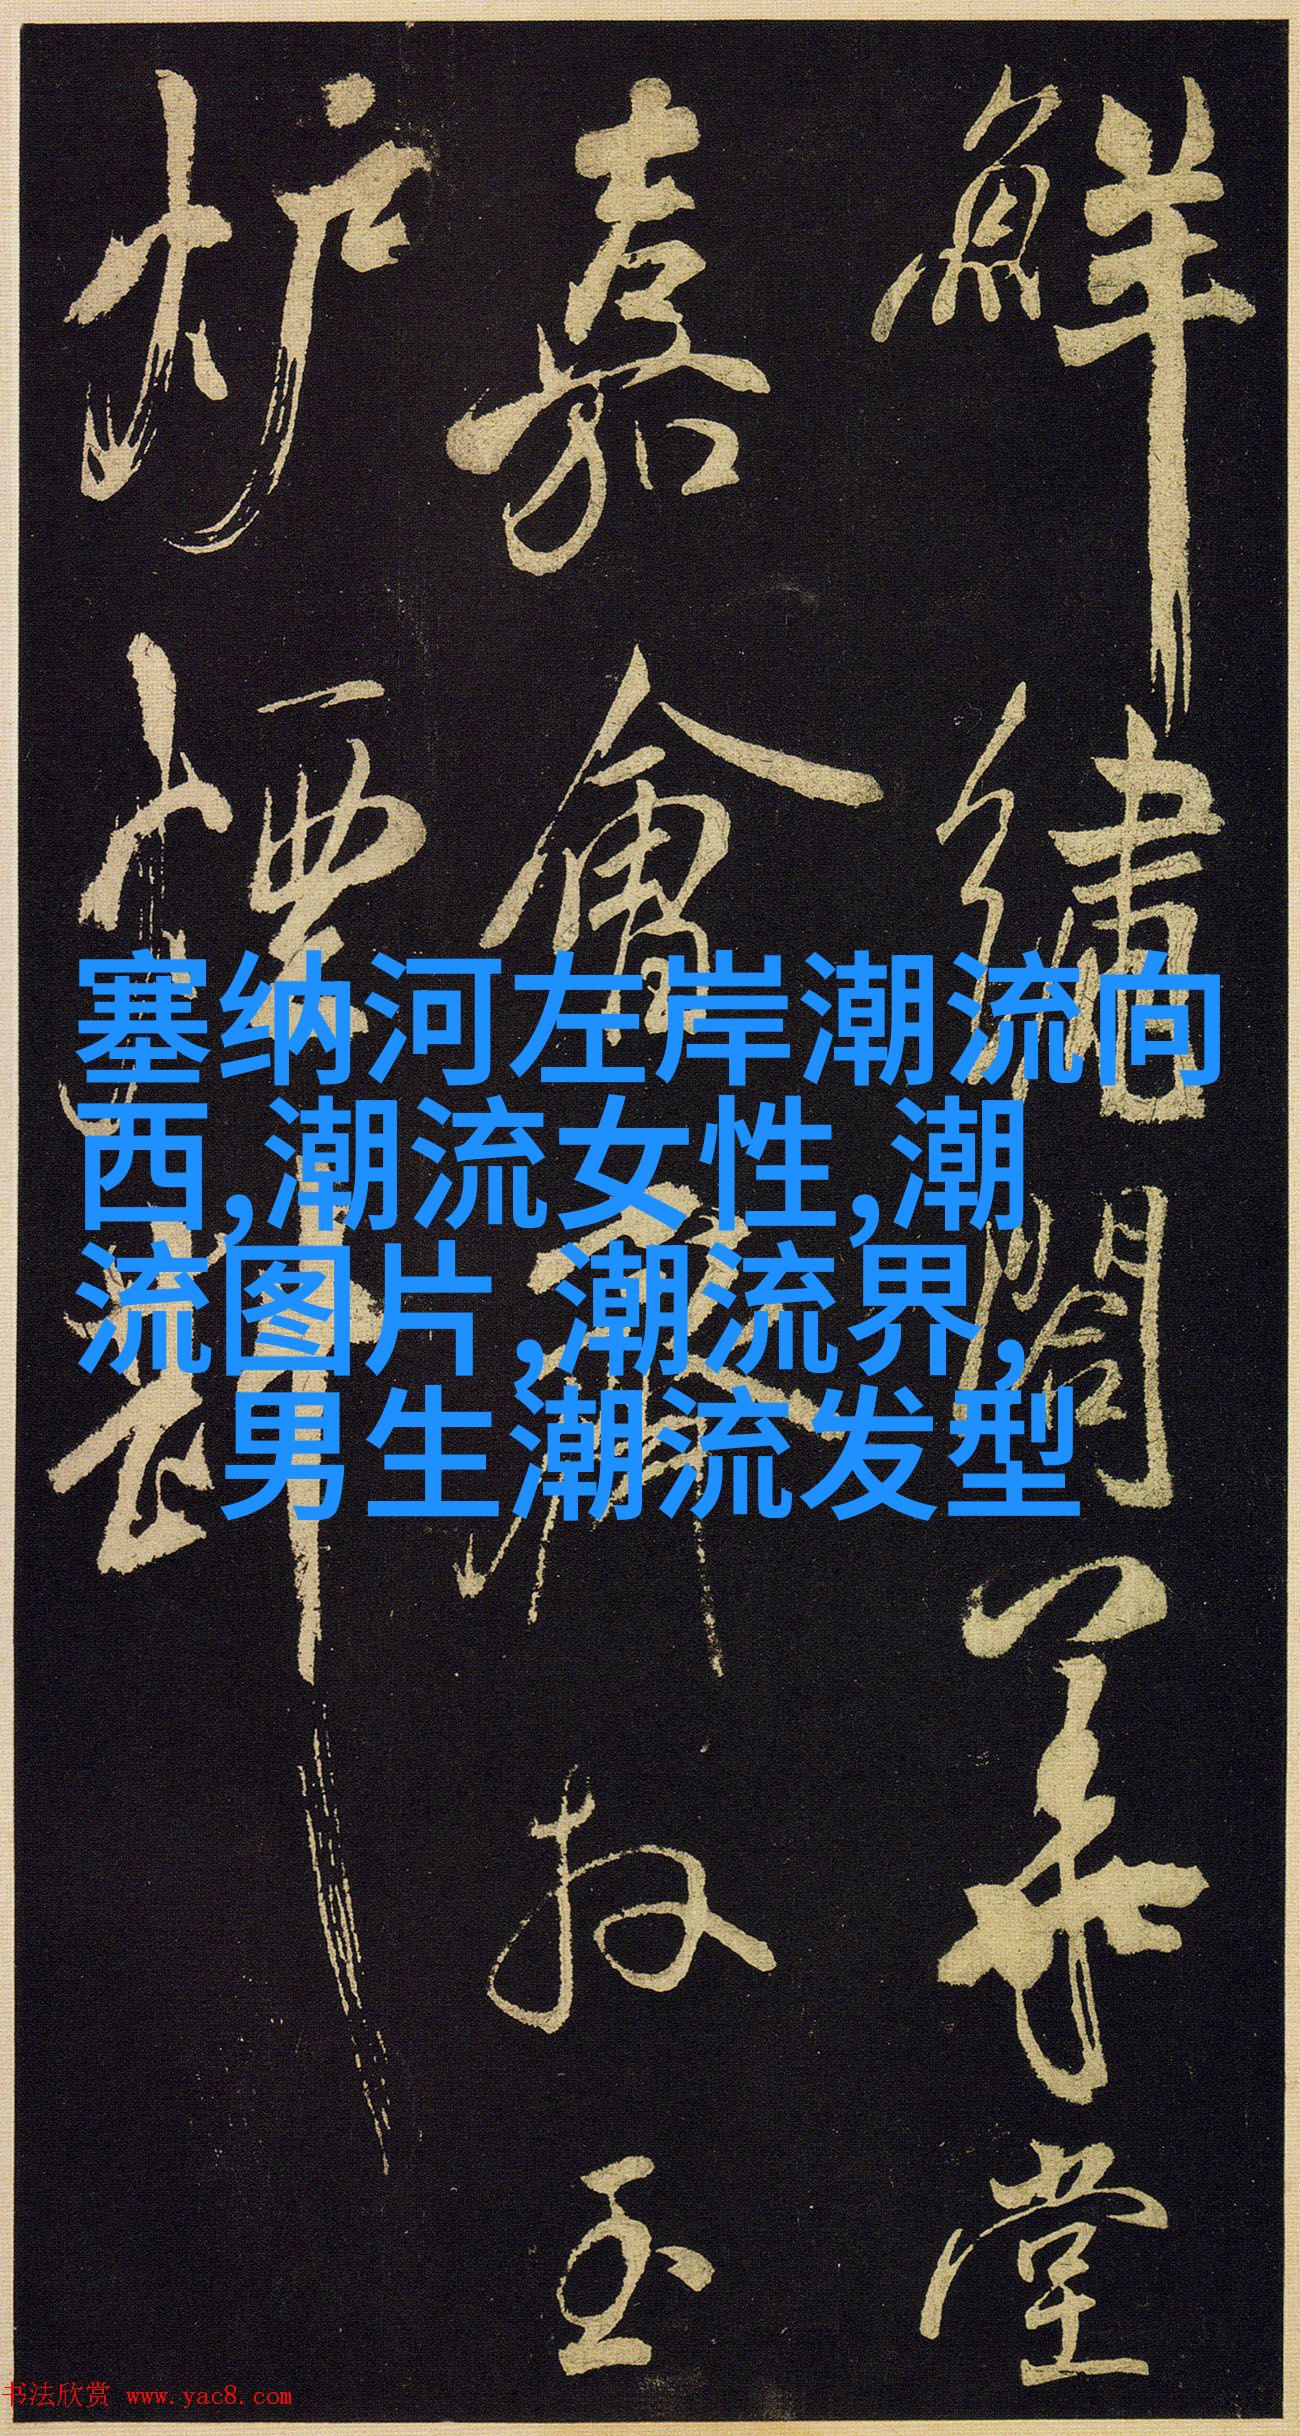 鮮繡閣華堂
嘉會
放玉
炉
塞纳河左岸潮流向
西,潮流女性,潮
流图片,潮流界,
男生潮流发型
书法欣赏 www.yac8.com